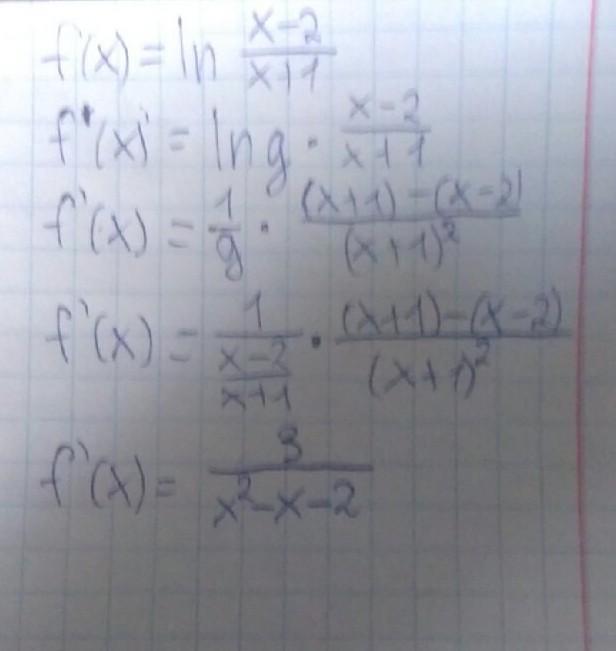 f(x) = ln \frac{x-2}{x+1}
f'(x) = ln g · \frac{x-2}{x+1}
f'(x) = \frac{1}{g} · \frac{(x+1)-(x-2)}{(x+1)^2}
f'(x) = \frac{1}{\frac{x-2}{x+1}} · \frac{(x+1)-(x-2)}{(x+1)^2}
f'(x) = \frac{3}{x^2-x-2}